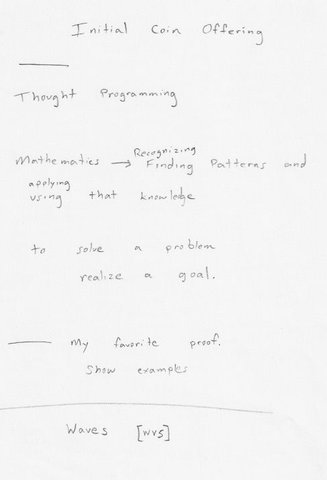 Initial Coin Offering
Thought Programming
Recognizing
Mathematics → Finding Patterns and
applying
using that knowledge
to solve a problem
realize a goal.
My favorite proof.
Show examples
Waves [WVS]